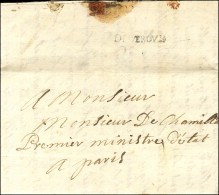 DE TROYE
A Monsieur
Monsieur De Chamilla
Premier ministre d'état
a paris